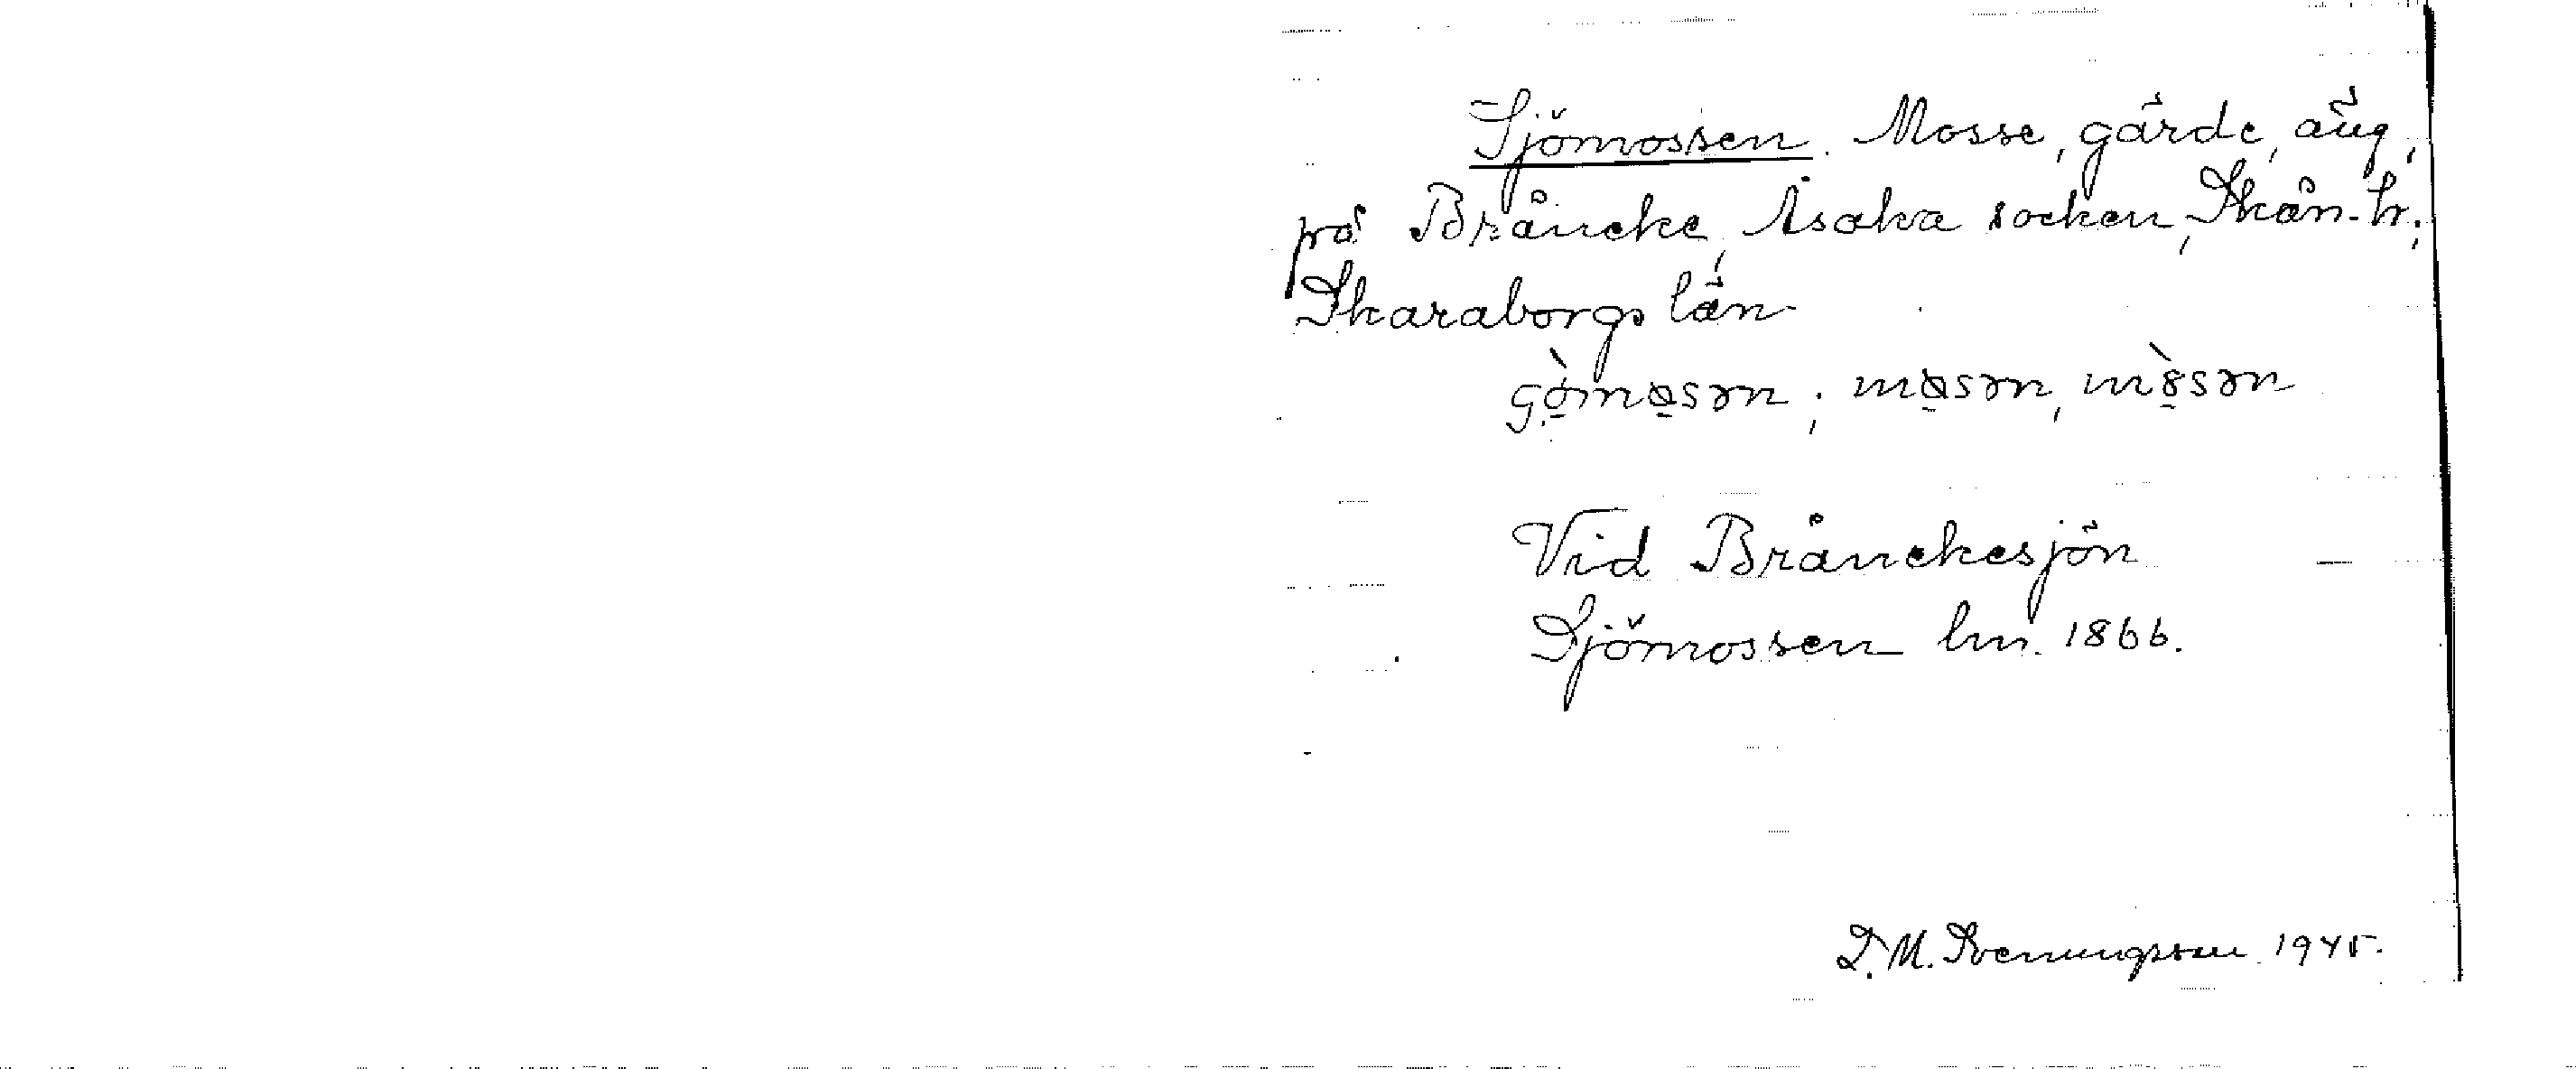 Sjömossen. Mosse, gärde, äng,
på Bråneke, Åsaka socken, Skån. hr.,
Skaraborgs län
Vid Brånekesjön
Sjömossen lm. 1866.
S. M. Svenungsson 1945.